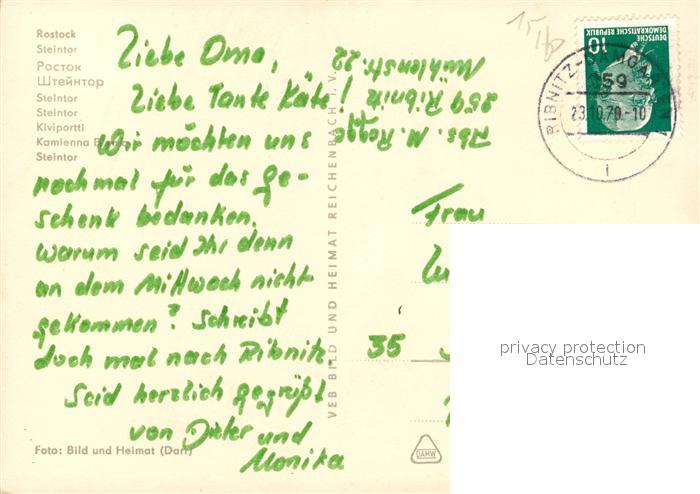 Rostock
Steintor
Росток
Штейнтор
Steintor
Steintor
Kiviportti
Kamienna
Steintor
Liebe Oma,
Liebe Tante Käte!
Wir möchten uns
nochmal für das Ge-
schenk bedanken.
Warum seid Ihr denn
an dem Mittwoch nicht
gekommen? Schreibt
doch mal nach Ribnitz.
Seid herzlich gegrüßt
von Dieter und
Monika
Foto: Bild und Heimat (Darr)
VEB BILD UND HEIMAT REICHENBACH I. V.
Abs. M.
259 Ribnitz
Mühlenstr. 22
15,-
DEUTSCHE DEMOKRATISCHE REPUBLIK
10
RIBNITZ-DAMGARTEN
259
23.10.70.-10
i
Frau
35
DAMW
privacy protection
Datenschutz